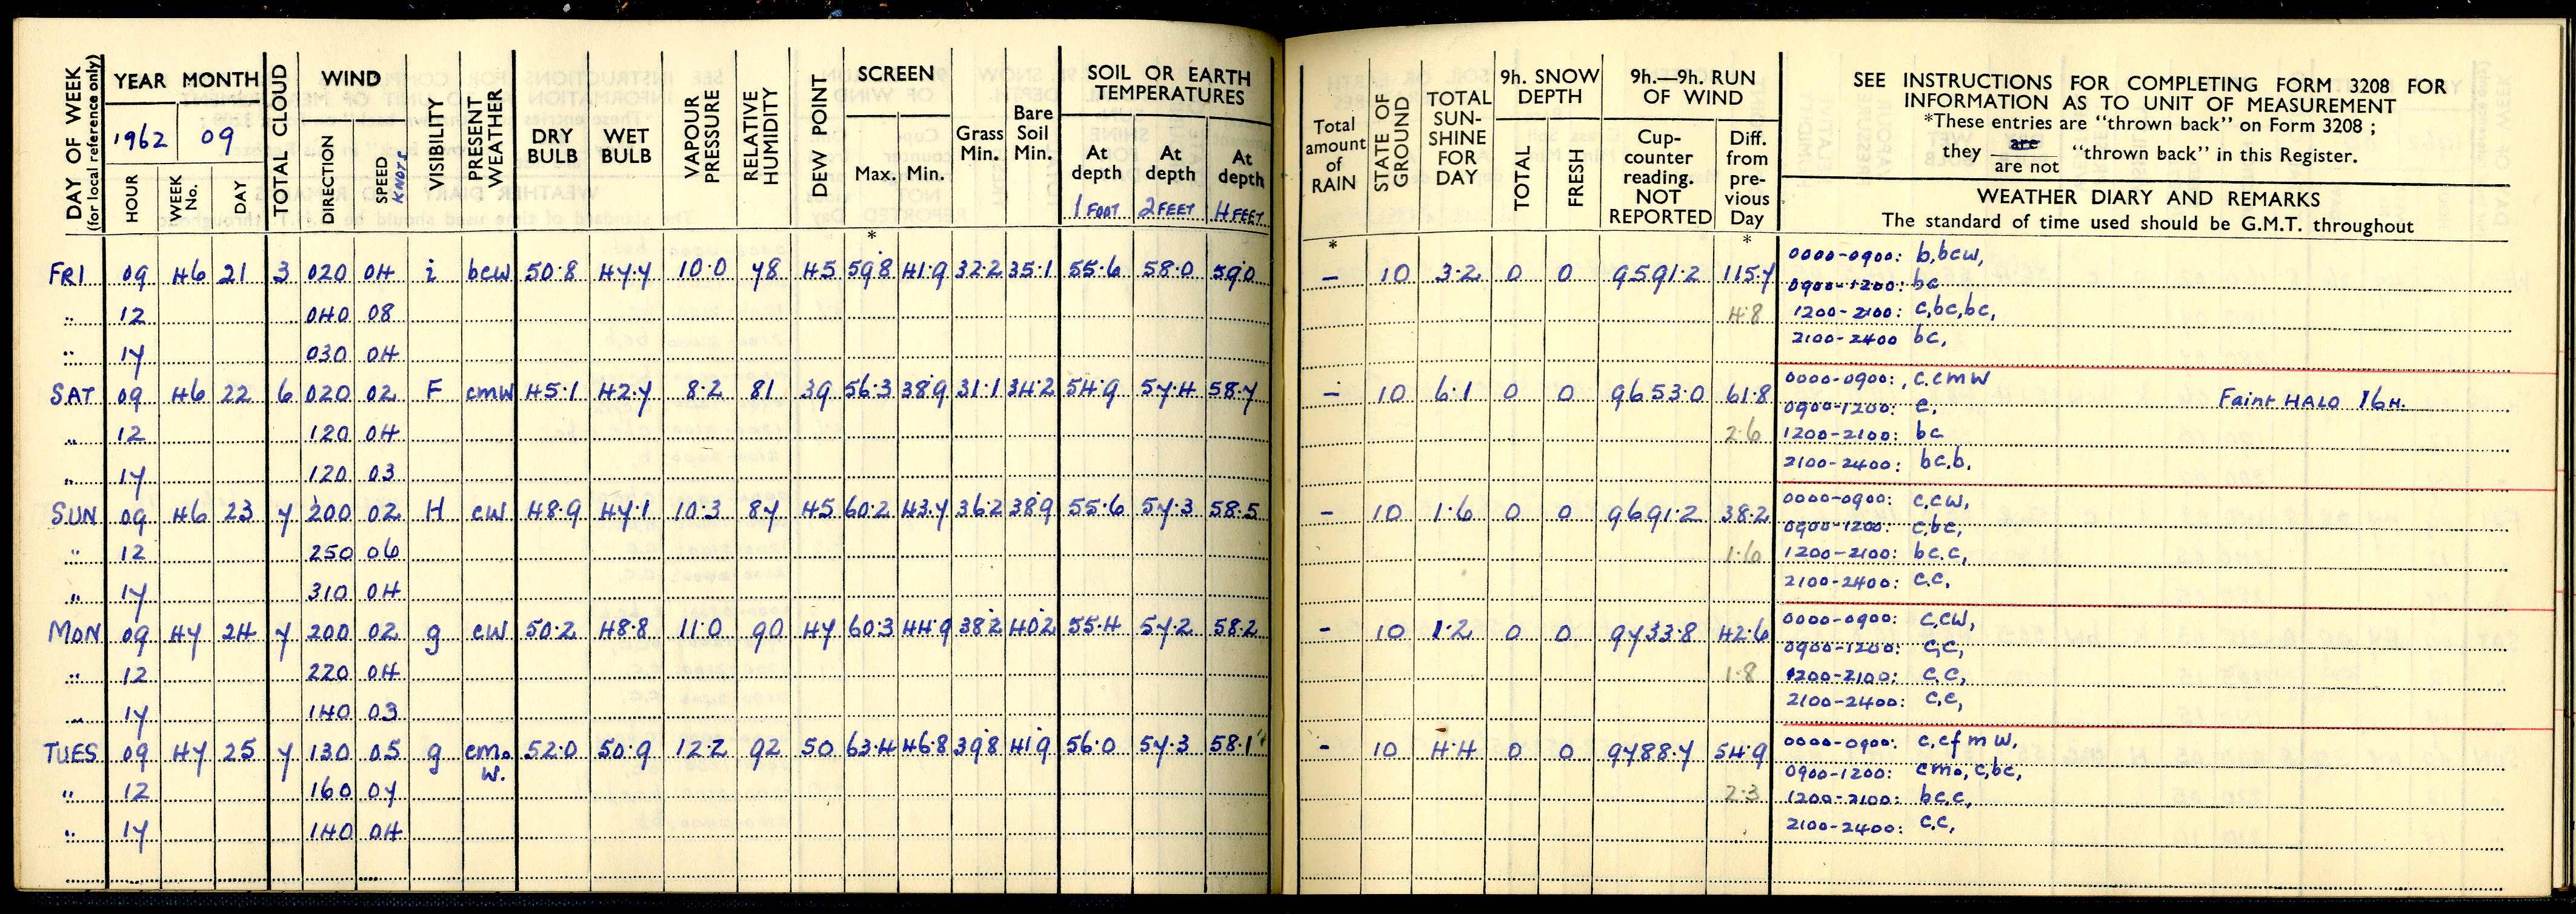 DAY OF WEEK (for local reference only)
YEAR MONTH
1962 09
HOUR WEEK No. DAY
TOTAL CLOUD
WIND
DIRECTION SPEED KNOTS
VISIBILITY
PRESENT WEATHER
DRY BULB
WET BULB
VAPOUR PRESSURE
RELATIVE HUMIDITY
DEW POINT
SCREEN
Max. Min.
*
Grass Min.
Bare Soil Min.
SOIL OR EARTH TEMPERATURES
At depth At depth At depth
1 FOOT 2 FEET 4 FEET
Total amount of RAIN
*
STATE OF GROUND
TOTAL SUN-SHINE FOR DAY
9h. SNOW DEPTH
TOTAL FRESH
9h.—9h. RUN OF WIND
Cup-counter reading. NOT REPORTED
Diff. from pre-vious Day
*
SEE INSTRUCTIONS FOR COMPLETING FORM 3208 FOR
INFORMATION AS TO UNIT OF MEASUREMENT
*These entries are "thrown back" on Form 3208 ;
they are / are not "thrown back" in this Register.
WEATHER DIARY AND REMARKS
The standard of time used should be G.M.T. throughout
FRI 09 46 21 3 020 04 i bcw 50.8 47.7 10.0 78 45 59.8 41.9 32.2 35.1 55.6 58.0 59.0 – 10 3.2 0 0 9591.2 115.7 0000-0900: b,bcw,
0900-1200: bc
" 12 040 08 4.8 1200-2100: c,bc,bc,
" 17 030 04 2100-2400 bc,
SAT 09 46 22 6 020 02 F cmw 45.1 42.7 8.2 81 39 56.3 38.9 31.1 34.2 54.9 57.4 58.7 – 10 6.1 0 0 9653.0 61.8 0000-0900: , c.cmw
0900-1200: c. Faint HALO 16H.
" 12 120 04 2.6 1200-2100: bc
" 17 120 03 2100-2400: bc.b.
SUN 09 46 23 7 200 02 H cw 48.9 47.1 10.3 87 45 60.2 43.7 36.2 38.9 55.6 57.3 58.5 – 10 1.6 0 0 9691.2 38.2 0000-0900: c,cw,
0900-1200: c,bc,
" 12 250 06 1.6 1200-2100: bc.c,
" 17 310 04 2100-2400: c.c,
MON 09 47 24 7 200 02 g cw 50.2 48.8 11.0 90 47 60.3 44.9 38.2 40.2 55.4 57.2 58.2 – 10 1.2 0 0 9733.8 42.6 0000-0900: c,cw,
0900-1200: c,c,
" 12 220 04 1.8 1200-2100: c.c,
" 17 140 03 2100-2400: c.c,
TUES 09 47 25 7 130 05 g cmo w. 52.0 50.9 12.2 92 50 63.4 46.8 39.8 41.9 56.0 57.3 58.1 – 10 4.4 0 0 9788.7 54.9 0000-0900: c,cfmw,
0900-1200: cmo,c,bc,
" 12 160 07 2.3 1200-2100: bc.c,
" 17 140 04 2100-2400: c.c,